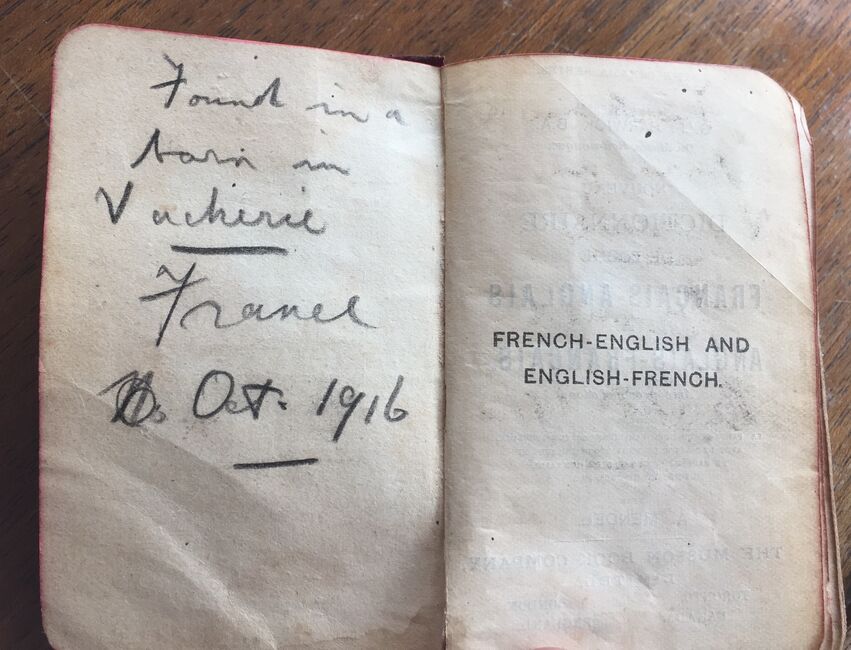 Found in a
barn in
Vacherie
France
Oct. 1916
FRENCH-ENGLISH AND
ENGLISH-FRENCH.